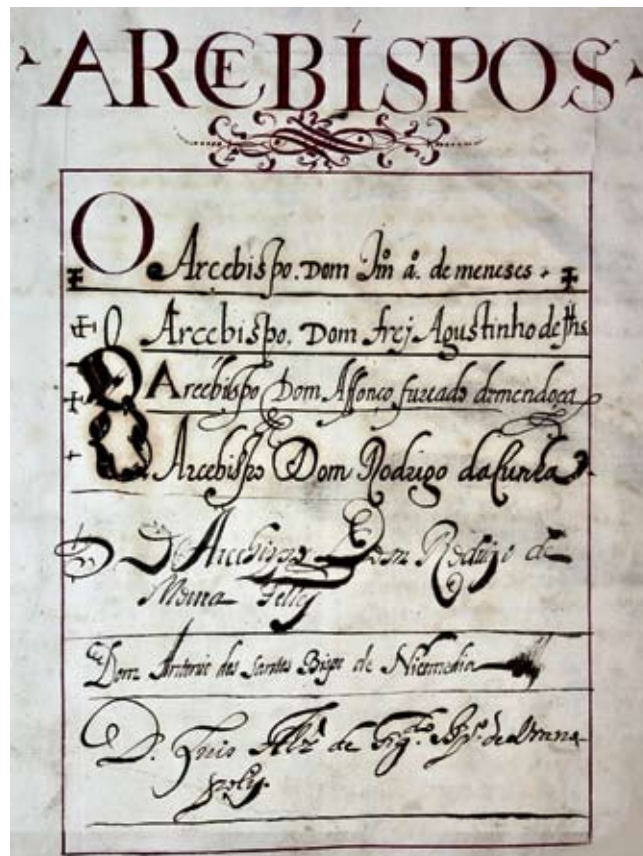 ARCEBISPOS
O Arcebispo. Dom Jm a. de meneses
O Arcebispo. Dom frej Agustinho de Jhs
O Arcebispo Dom Affonço furtado demendoça
O Arcebispo Dom Rodrigo da Cunha
O Arcebispo Dom Rodrigo de
Moura Telles
Dom Antonio dos Santos Bispo de Nicomedia
D. Luis Alz de Fig.do Bp.o de
poly.